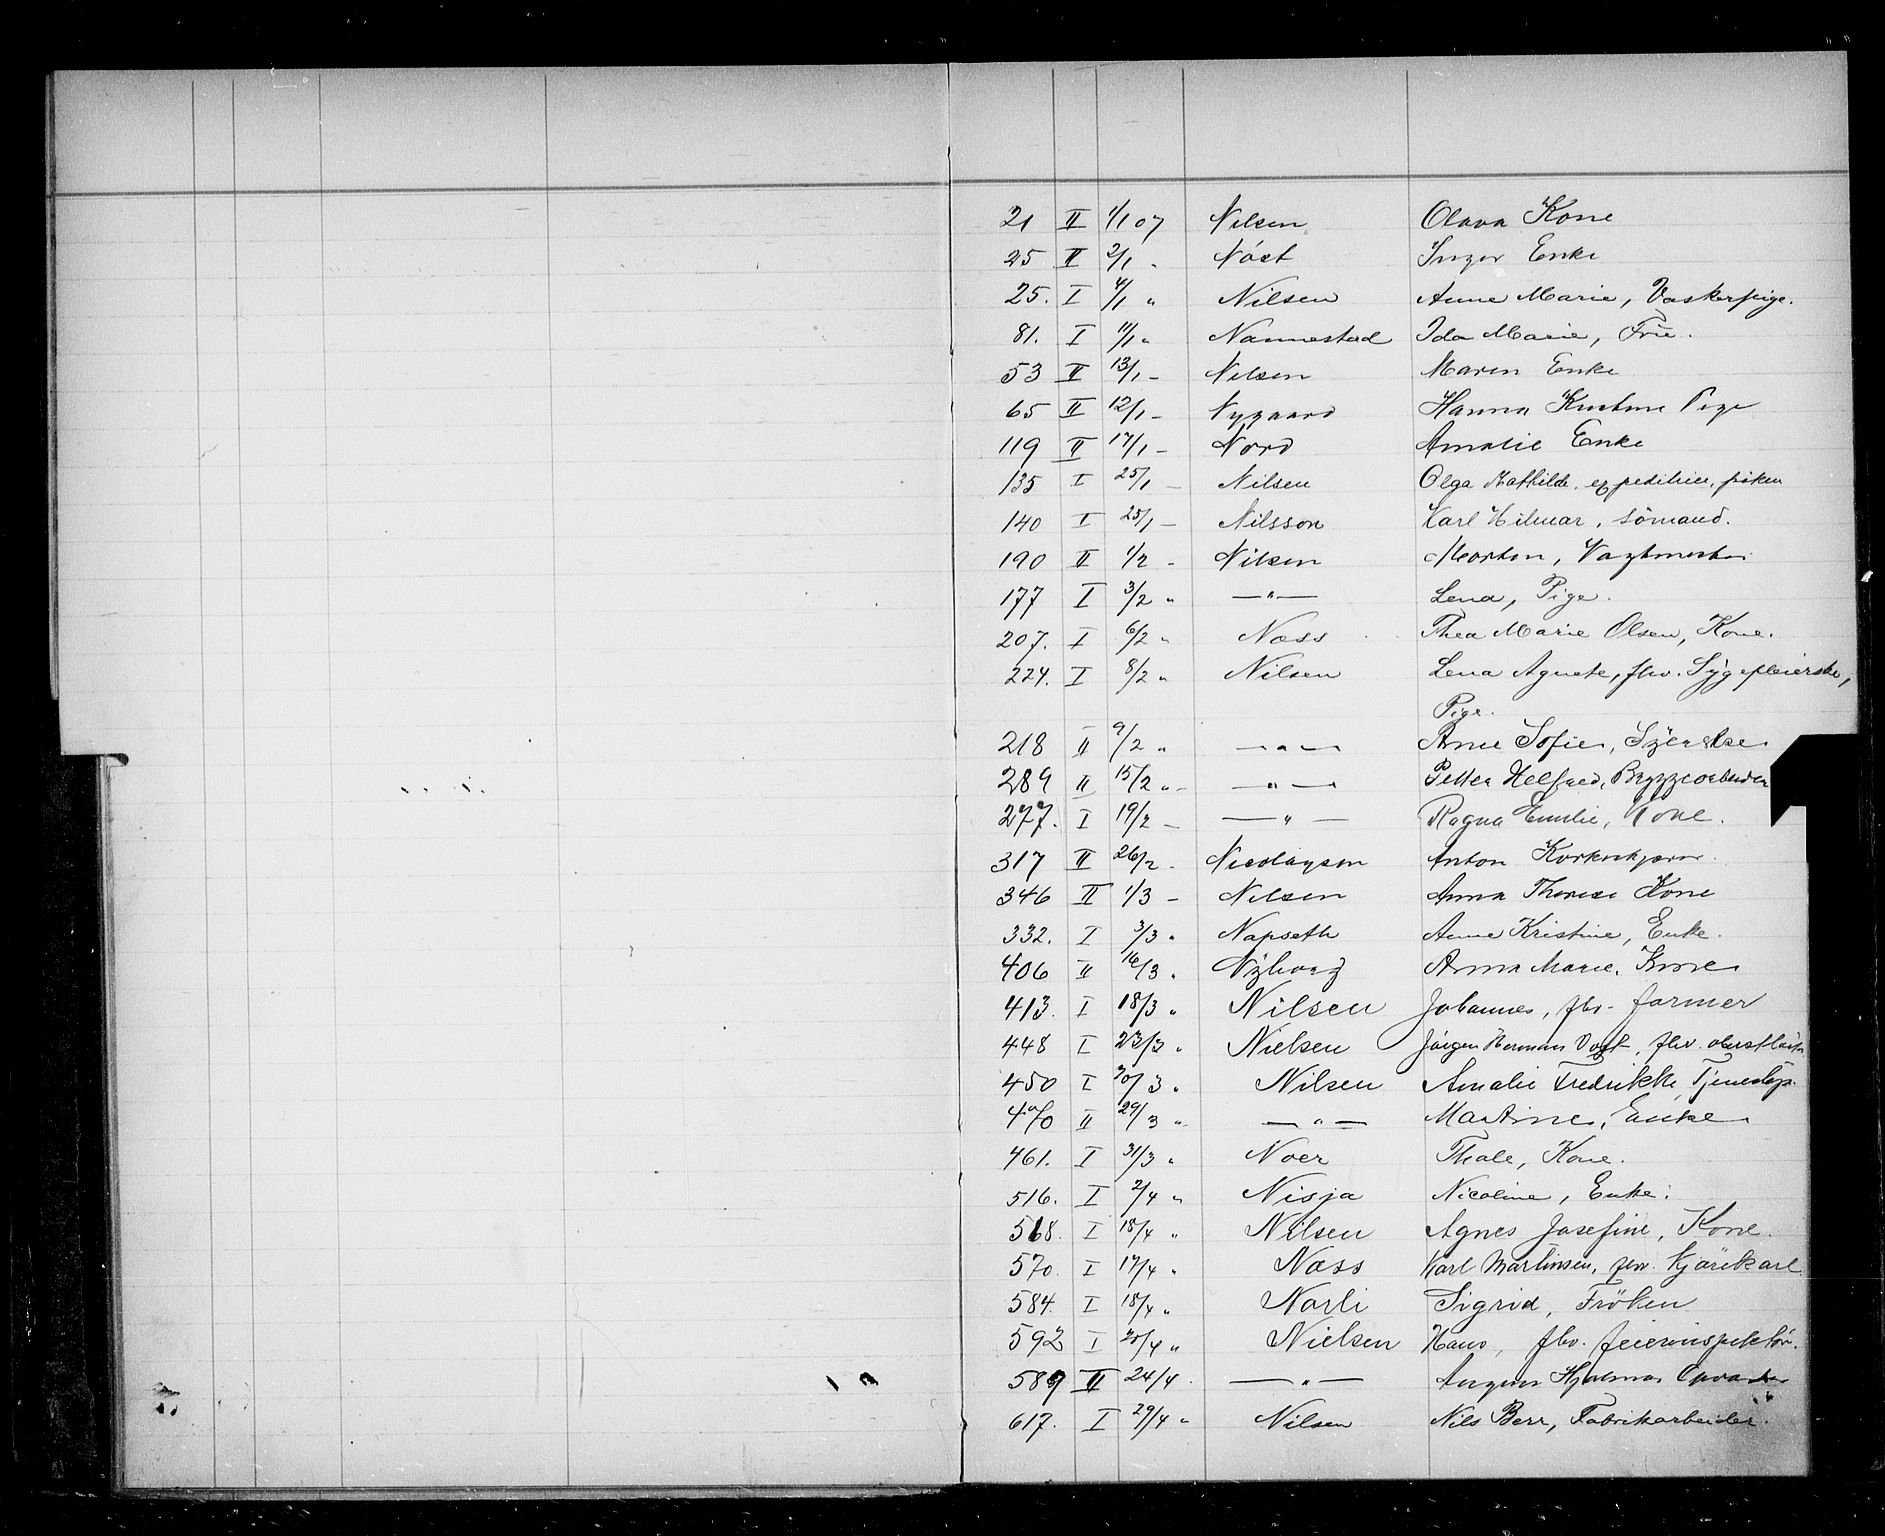 21 II 1/1 07 Nilsen Olava Kone
25 II 2/1 - Nöst Inger Enke
25. I 4/1 " Nilsen Anne Marie, Vaskerpige.
81. I 11/1 " Nannestad Ida Marie, Frue.
53 II 13/1 - Nilsen Maren Enke
65 II 12/1 - Nygaard Hanna Kristine Pige
119 II 17/1 - Nord Amalie Enke
135 I 25/1 - Nilsen Olga Mathilde, expeditrice, fröken
140 I 25/1 - Nilsson Karl Hilmar, sömand.
190 II 1/2 - Nilsen Morten, Vagtmester
177 I 3/2 " —"— Lena, Pige.
207. I 6/2 " Næss Thea Marie Olsen, Kone.
224. I 8/2 " Nilsen Lena Agnete, fhv. Sygepleierske,
Pige.
218 II 9/2 " —"— Anne Sofie, Syerske
289 II 15/2 " - —"— Petter Helfred, Bryggearbeider
277. I 19/2 - —"— Ragna Emilie, Kone.
317 II 26/2 - Nicolaysen Anton Korkeskjærer
346 II 1/3 - Nilsen Anna Therese Kone
332. I 3/3 " Napseth Anne Kristine, Enke.
406 II 16/3 " Nyborg Anna Marie, Kone
413. I 18/3 " Nilsen Johannes, fhv. farmer
448 I 23/3 " Nielsen Jörgen Herman Vogt, fhv. oberstlöitn
450 I 30/3 " Nilsen Amalie Fredrikke, Tjenestep.
470 II 29/3 " —"— Martine, Enke
461. I 31/3 " Noer Thale, Kone.
516. I 2/4 " Nisja Nicoline, Enke.
568. I 18/4 " Nilsen Agnes Josefine, Kone.
570. I 17/4 " Næss Karl Martinsen, fhv. kjörekarl
584. I 18/4 " Narli Sigrid, Fröken
592 I 20/4 " Nielsen Hans, fhv. feierinspektör.
589 II 24/4 . —"— Hjalmar
617. I 29/4 " Nilsen Nils Berr, Fabrikarbeider.